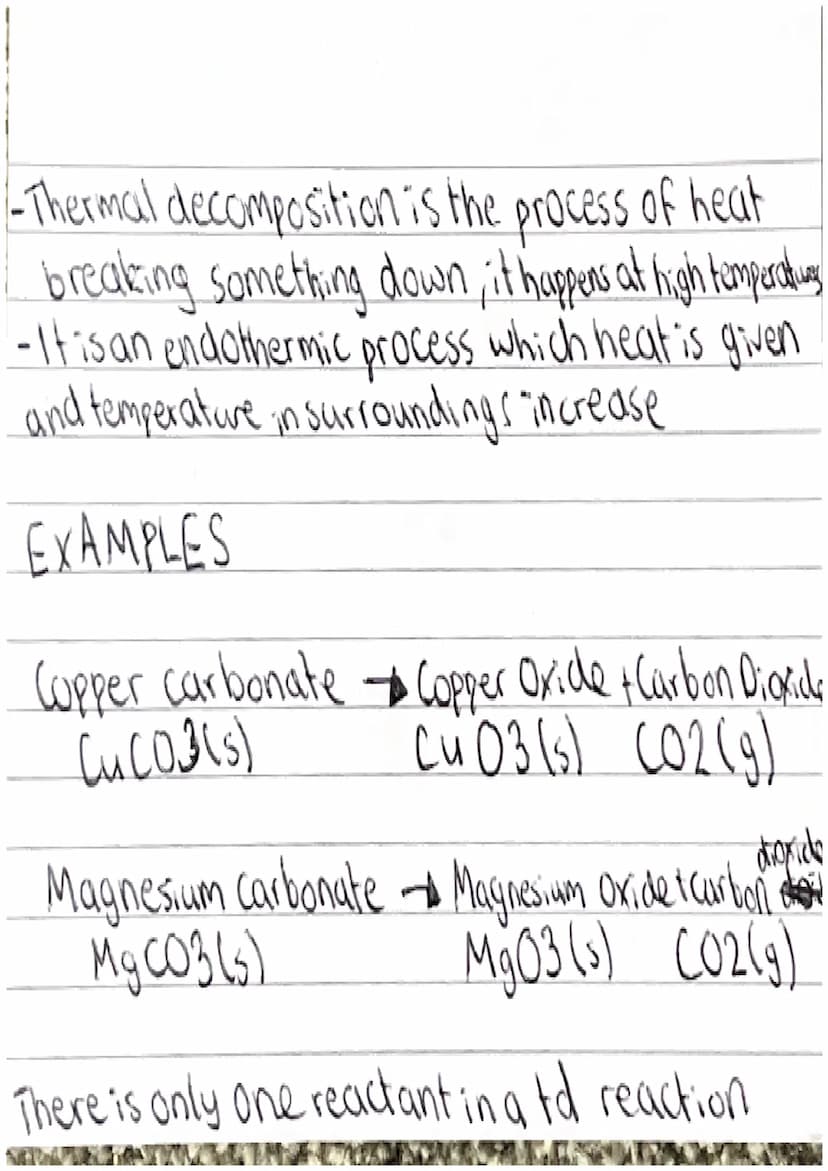 -Thermal decomposition is the process of heat
breaking something down, it happens at high temperatures
-It is an endothermic process which heat is given
and temperature in surroundings increase
EXAMPLES
Copper carbonate → Copper Oxide + Carbon Dioxide
CuCO3(s) CuO3(s) CO2(g)
dioxide
Magnesium Carbonate → Magnesium Oxide + Carbon
MgCO3(s) MgO3(s) CO2(g)
There is only one reactant in a td reaction